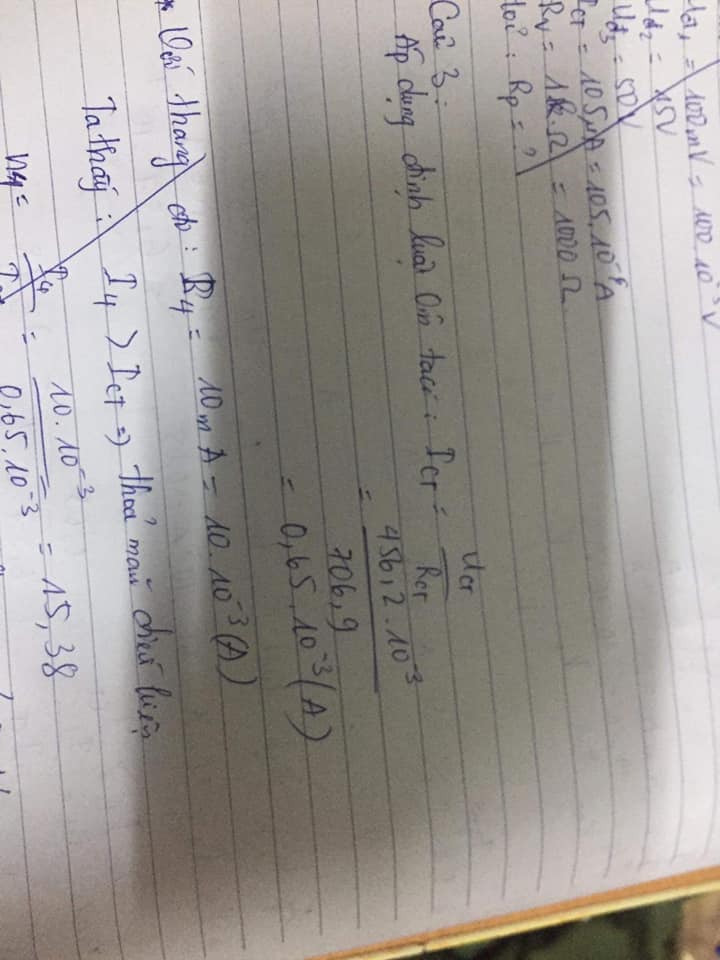 Ud1 = 100mV = 100.10⁻³V
Ud2 = 15V
Ud3 = 50V
Ict = 105μA = 105.10⁻⁶A
Rv = 1k.Ω = 1000Ω
Hỏi : Rp = ?
Câu 3 :
Áp dụng định luật Ôm ta có : Ict = Uct / Rct
= 456,2.10⁻³ / 706,9
= 0,65.10⁻³ (A)
* Với thang đo : I4 = 10mA = 10.10⁻³ (A)
Ta thấy : I4 > Ict ⇒ thoả mãn điều kiện
n4 = I4 / Ict = 10.10⁻³ / 0,65.10⁻³ = 15,38